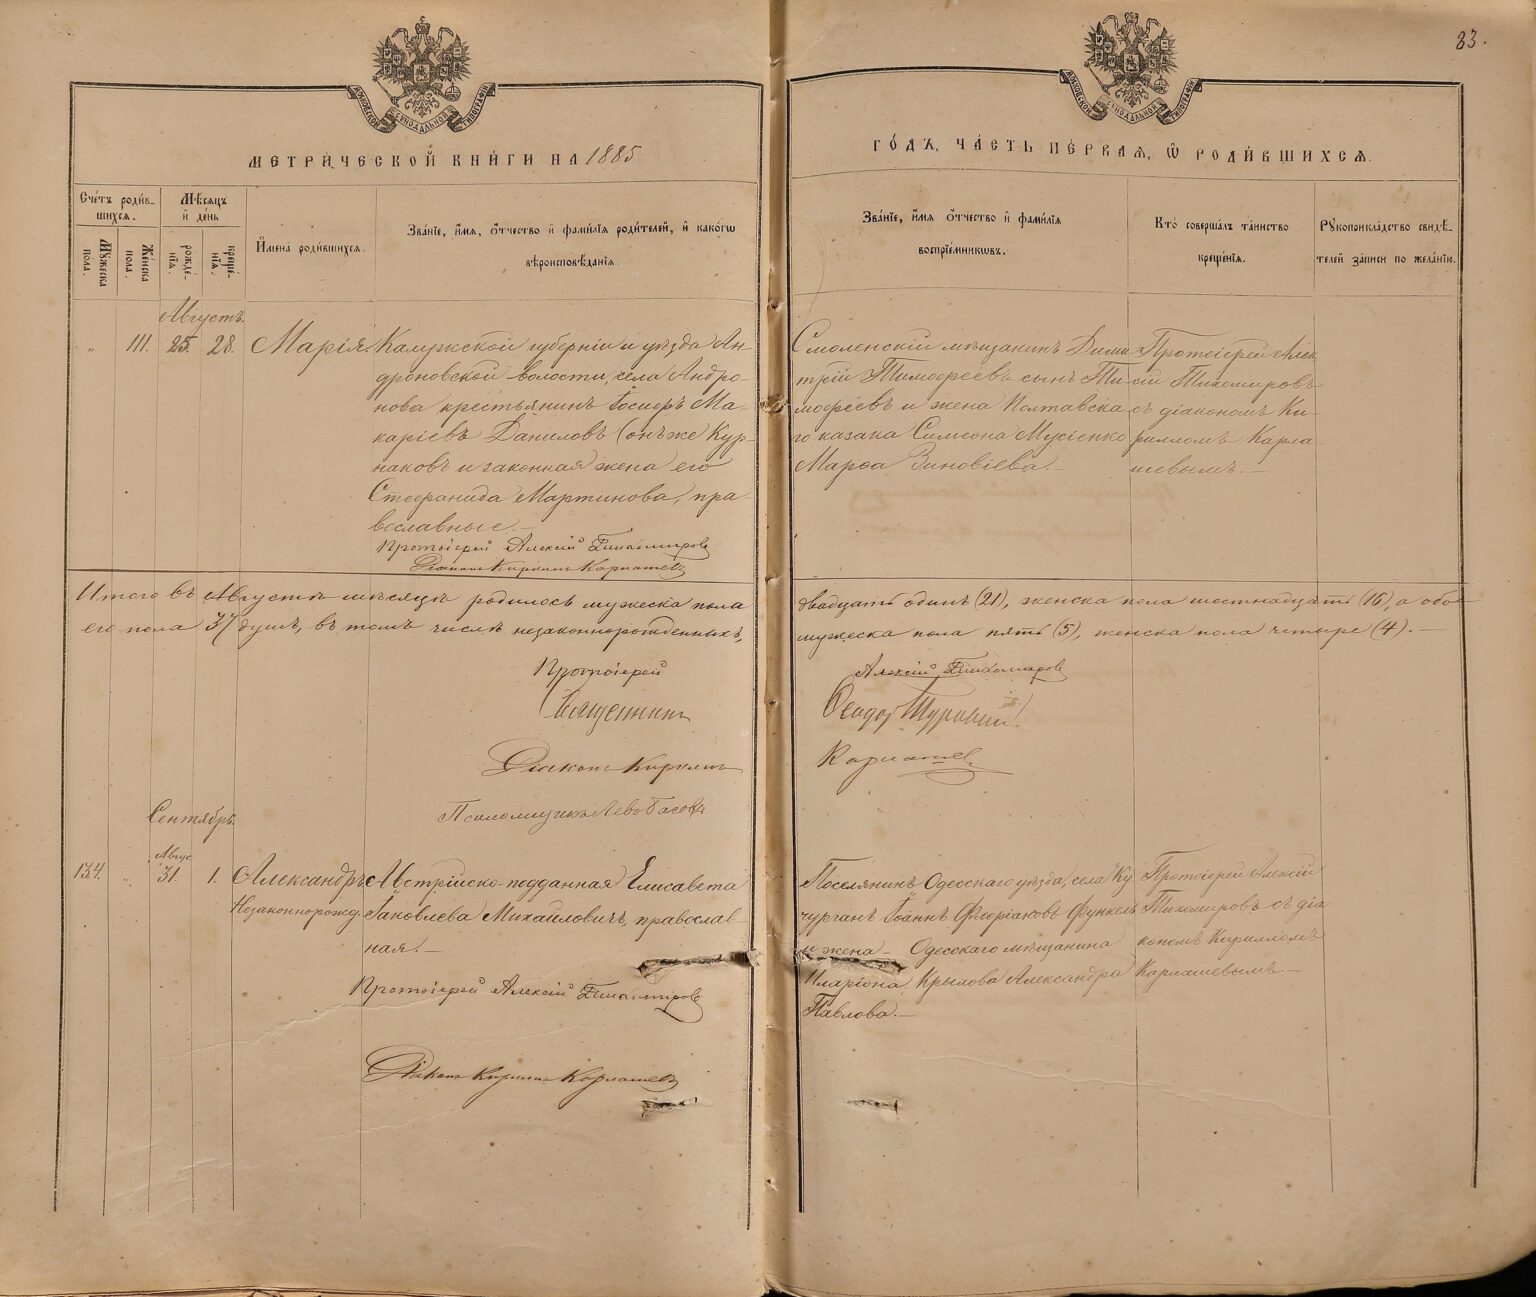 83.
МОСКОВСКОЙ СѴНОДАЛЬНОЙ ТИПОГРАФІИ
МОСКОВСКОЙ СѴНОДАЛЬНОЙ ТИПОГРАФІИ
МЕТРИ́ЧЕСКОЙ КНИ́ГИ НА 1885
ГО́ДЪ, ЧА́СТЬ ПЕ́РВАѦ, Ѡ РОДИ́ВШИХСѦ.
Сче́тъ роди́в-
шихсѧ.
Мꙋжеска
пола.
Же́нска
пола.
Мѣ́сѧцъ
и҆ де́нь
рожде́-
нїѧ.
креще́-
нїѧ.
И҆мена̀ роди́вшихсѧ.
Зва́нїе, и҆́мѧ, ѻ҆́тчество и҆ фами́лїѧ роди́телей, и҆ како́гѡ
вѣроисповѣ́данїѧ.
Зва́нїе, и҆́мѧ ѻ҆́тчество и҆ фами́лїѧ
воспрїе́мникѡвъ.
Кто̀ соверша́лъ та́инство
креще́нїѧ.
Рꙋкоприкла́дство свидѣ́-
телей за́писи по жела́нїю.
Августъ.
„ 111. 25. 28. Марія.
Калужской губерніи и уѣзда Ан-
дроновской волости, села Андро-
нова крестьянинъ Іосифъ Ма-
каріевъ Даниловъ (онъ же Кур-
наковъ и законная жена его
Стефанида Мартинова, пра-
вославные.—
Протоіерей Алексій Тихомировъ
Діаконъ Кириллъ Карлашевъ
Смоленскій мѣщанинъ Дими-
трій Тимофеевъ сынъ Ти-
мофеевъ и жена Полтавска-
го казака Симеона Мусіенко
Марѳа Зиновіева.—
Протоіерей Алек-
сій Тихомировъ
съ діакономъ Ки-
рилломъ Карла-
шевымъ.—
Итого въ Августѣ мѣсяцѣ родилось мужеска пола двадцать одинъ (21), женска пола шестнадцать (16), а обо-
его пола 37 душъ, въ томъ числѣ незаконнорожденныхъ, мужеска пола пять (5), женска пола четыре (4).—
Протоіерей Алексій Тихомировъ
Священникъ Ѳеодоръ
Діаконъ Кириллъ Карлашев.
Псаломщикъ Левъ
Сентябрь.
Авгус.
134. „ 31. 1. Александръ
Незаконнорожд.
Австрійско-подданная Елисавета
Іаковлева Михайловичъ, православ-
ная.—
Протоіерей Алексій Тихомировъ
Діаконъ Кириллъ Карлашевъ
Поселянинъ Одесскаго уѣзда, села Ку-
чурганъ Іоаннъ Флоріановъ Функель
и жена — Одесскаго мѣщанина
Иларіона Крылова Александра
Павлова.—
Протоіерей Алексій
Тихомировъ съ діа-
кономъ Кирилломъ
Карлашевымъ.—